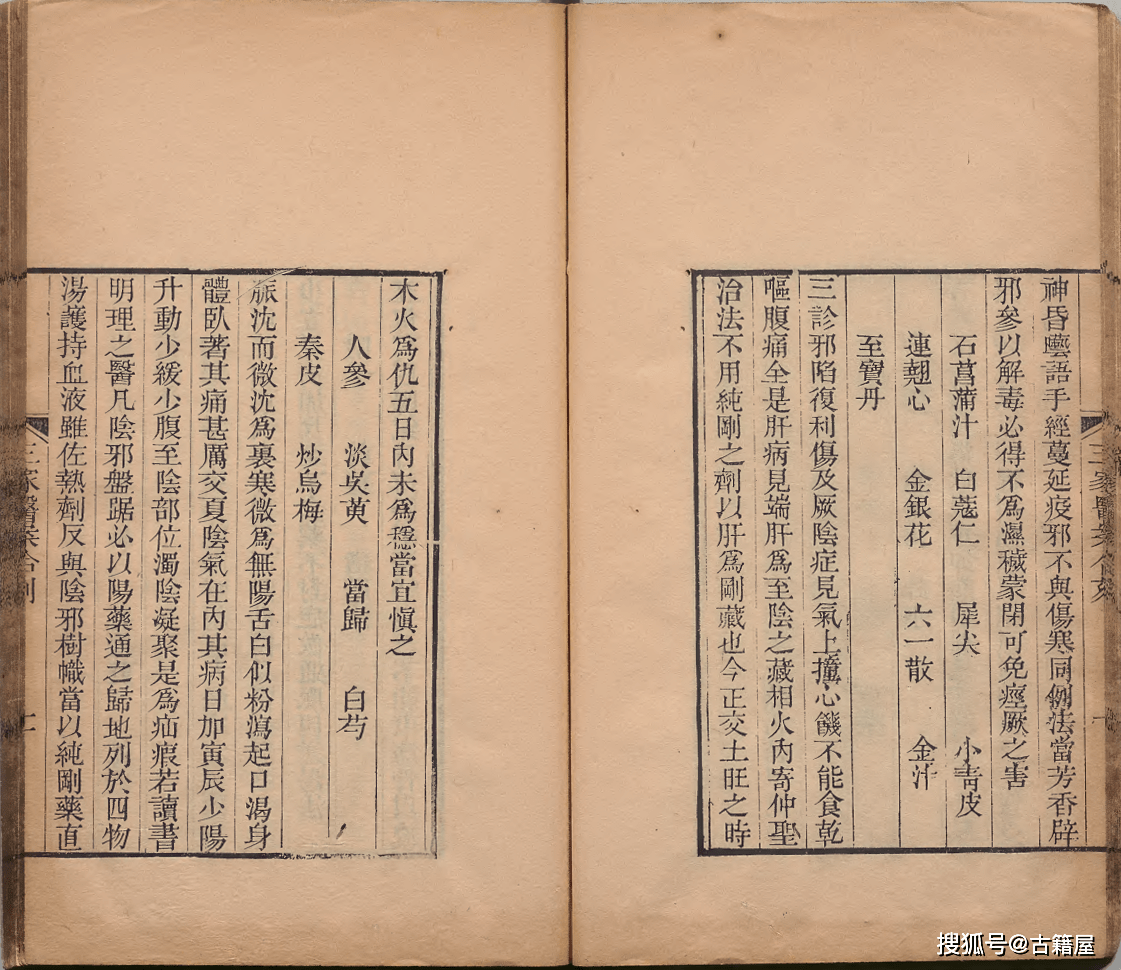 神昏囈語手經蔓延疫邪不與傷寒同例法當芳香辟
邪參以解毒必得不爲濕穢蒙閉可免痙厥之害
石菖蒲汁 白蔻仁 犀尖 小靑皮
連翹心 金銀花 六一散 金汁
至寶丹
三診邪陷復利傷及厥陰症見氣上撞心饑不能食乾
嘔腹痛全是肝病見端肝爲至陰之藏相火內寄仲聖
治法不用純剛之劑以肝爲剛藏也今正交土旺之時
木火爲仇五日內未爲穩當宜愼之
人參 淡吳萸 當歸 白芍
秦皮 炒烏梅
脈沈而微沈爲裏寒微爲無陽舌白似粉瀉起口渴身
體臥著其痛甚厲交夏陰氣在內其病日加寅辰少陽
升動少緩少腹至陰部位濁陰凝聚是爲疝瘕若讀書
明理之醫凡陰邪盤踞必以陽藥通之歸地列於四物
湯護持血液雖佐熱劑反與陰邪樹幟當以純剛藥直
三家醫案合刻
搜狐号@古籍屋